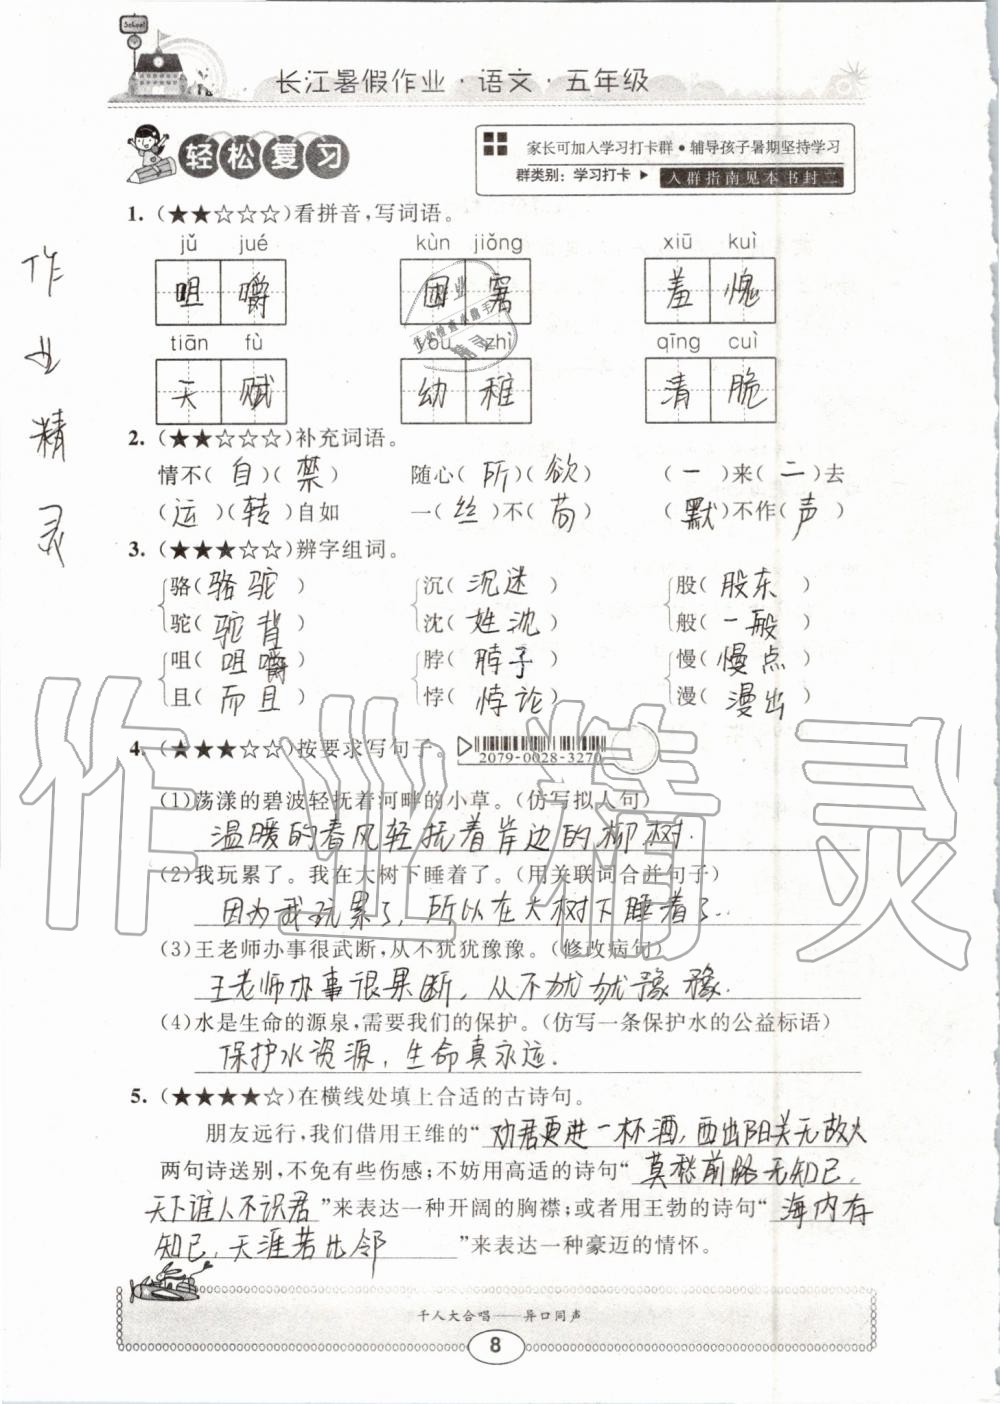 School
长江暑假作业·语文·五年级
轻松复习
家长可加入学习打卡群·辅导孩子暑期坚持学习
群类别：学习打卡 ▶ 入群指南见本书封二
作业精灵
1. (★★☆☆☆)看拼音,写词语。
jǔ jué kùn jiǒng xiū kuì
咀嚼 困窘 羞愧
tiān fù yòu zhì qīng cuì
天赋 幼稚 清脆
2. (★★☆☆☆)补充词语。
情不(自)(禁) 随心(所)(欲) (一)来(二)去
(运)(转)自如 一(丝)不(苟) (默)不作(声)
3. (★★★☆☆)辨字组词。
骆(骆驼) 沉(沉迷) 股(股东)
驼(驼背) 沈(姓沈) 般(一般)
咀(咀嚼) 脖(脖子) 慢(慢点)
且(而且) 悖(悖论) 漫(漫出)
4. (★★★☆☆)按要求写句子。
2079-0028-3270
(1)荡漾的碧波轻抚着河畔的小草。(仿写拟人句)
温暖的春风轻抚着岸边的柳树.
(2)我玩累了。我在大树下睡着了。(用关联词合并句子)
因为我玩累了,所以在大树下睡着了.
(3)王老师办事很武断,从不犹犹豫豫。(修改病句)
王老师办事很果断,从不犹犹豫豫.
(4)水是生命的源泉,需要我们的保护。(仿写一条保护水的公益标语)
保护水资源,生命真永远.
5. (★★★★☆)在横线处填上合适的古诗句。
朋友远行,我们借用王维的“劝君更进一杯酒,西出阳关无故人
两句诗送别,不免有些伤感;不妨用高适的诗句“莫愁前路无知己,
天下谁人不识君”来表达一种开阔的胸襟;或者用王勃的诗句“海内存
知己,天涯若比邻”来表达一种豪迈的情怀。
千人大合唱——异口同声
8
作业精灵